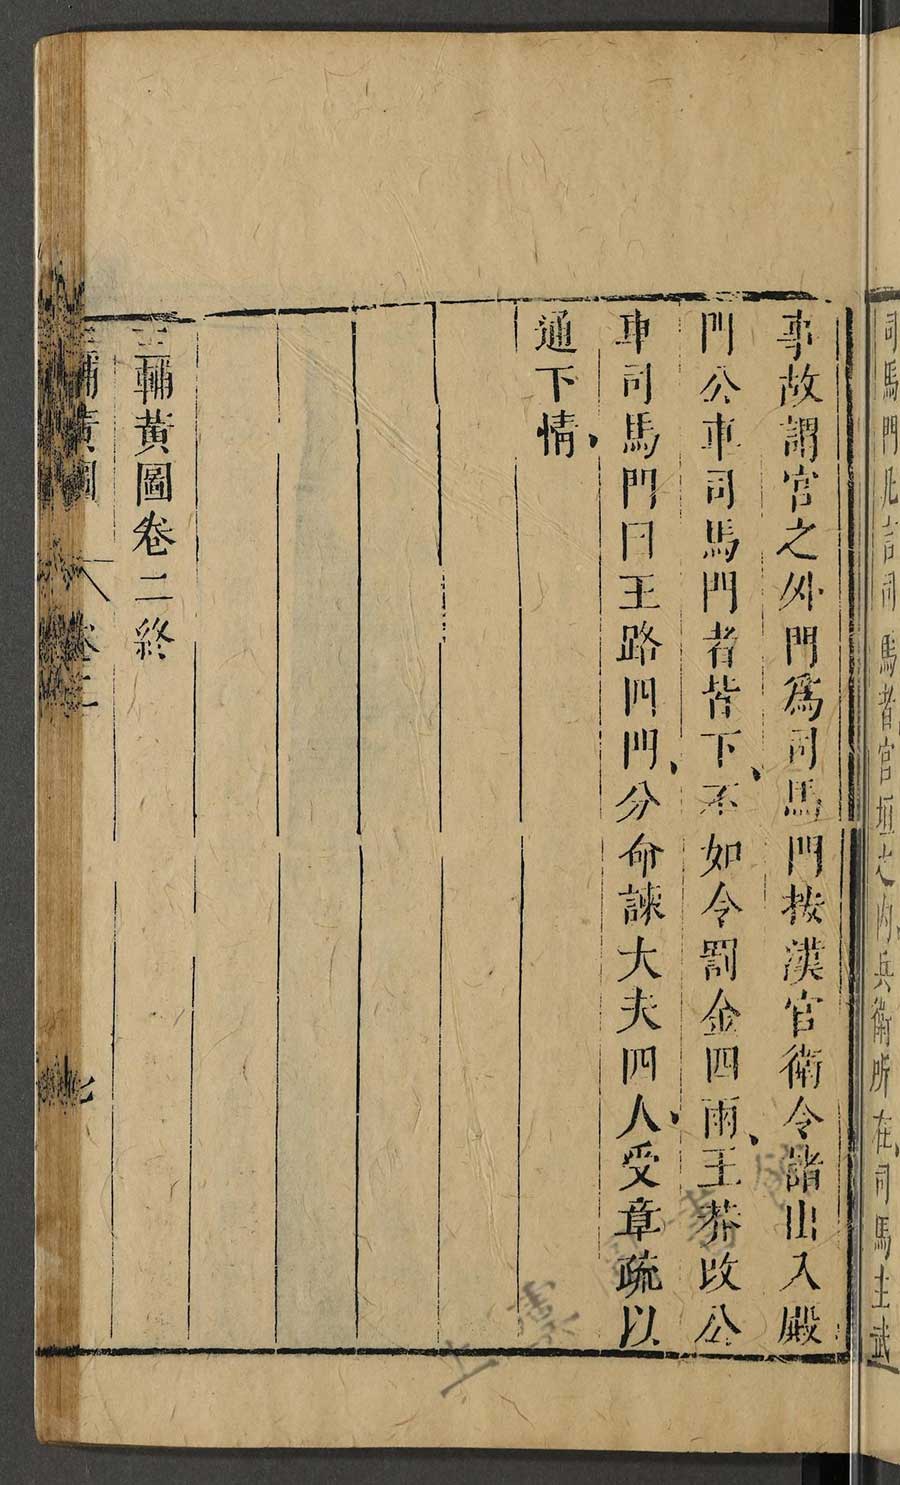 司馬門凡言司馬者宮垣之内兵衛所在司馬主武
事故謂宮之外門爲司馬門按漢宮衛令諸出入殿
門公車司馬門者皆下不如令罰金四兩王莽改公
車司馬門曰王路四門分命諫大夫四人受章疏以
通下情
三輔黃圖卷二終
三輔黃圖 卷二